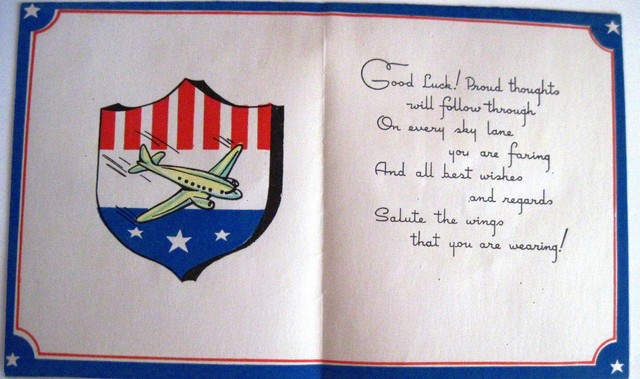 Good Luck! Proud thoughts
will follow through
On every sky lane
you are faring
And all best wishes
and regards
Salute the wings
that you are wearing!